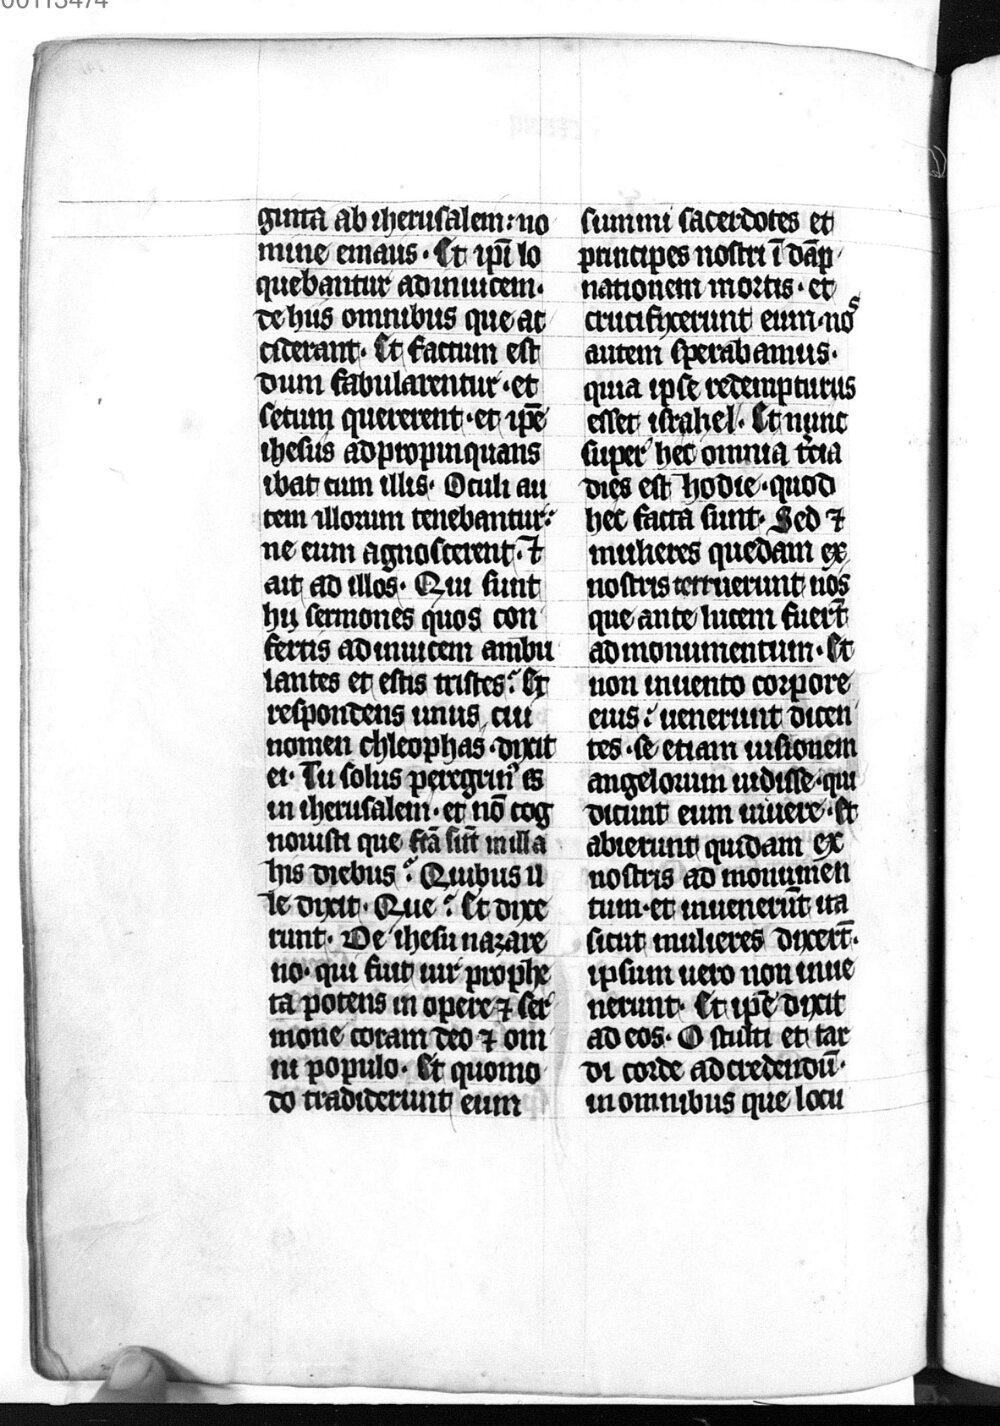 00113474
ginta ab iherusalem: no
mine emaus. Et ip̃i lo
quebantur adinuicem.
de hiis omnibus que ac
ciderant. Et factum est
dum fabularentur. et
secum quererent. et ip̃e
ihesus adpropinquans
ibat cum illis. Oculi au
tem illorum tenebantur:
ne eum agnoscerent. ⁊̄
ait ad illos. Qui sunt
hij sermones quos con
fertis adinuicem ambu
lantes et estis tristes? Et
respondens unus cui
nomen chleophas. dixit
ei. Tu solus peregrinꝰ es
in iherusalem. et nō cog
nouisti que fc̄ā sūt in illa
his diebus? Quibus il
le dixit. Que? Et dixe
runt. De ihesu nazare
no. qui fuit uir prophe
ta potens in opere ⁊ ser
mone coram deo ⁊ om
ni populo. Et quomo
do tradiderunt eum
summi sacerdotes et
principes nostri ī dāp
nationem mortis. et
crucifixerunt eum. nos
autem sperabamus.
quia ipse redempturus
esset israhel. Et nunc
super hec omnia t̾cia
dies est hodie. quod
hec facta sunt. Sed ⁊
mulieres quedam ex
nostris terruerunt nos
que ante lucem fuer̄t
ad monumentum. Et
non inuento corpore
eius: uenerunt dicen
tes. se etiam uisionem
angelorum uidisse. qui
dicunt eum uiuere. Et
abierunt quidam ex
nostris ad monumen
tum. et inuenerūt ita
sicut mulieres dixer̄t.
ipsum uero non inue
nerunt. Et ip̃e dixit
ad eos. O stulti et tar
di corde ad credendū.
in omnibus que locu